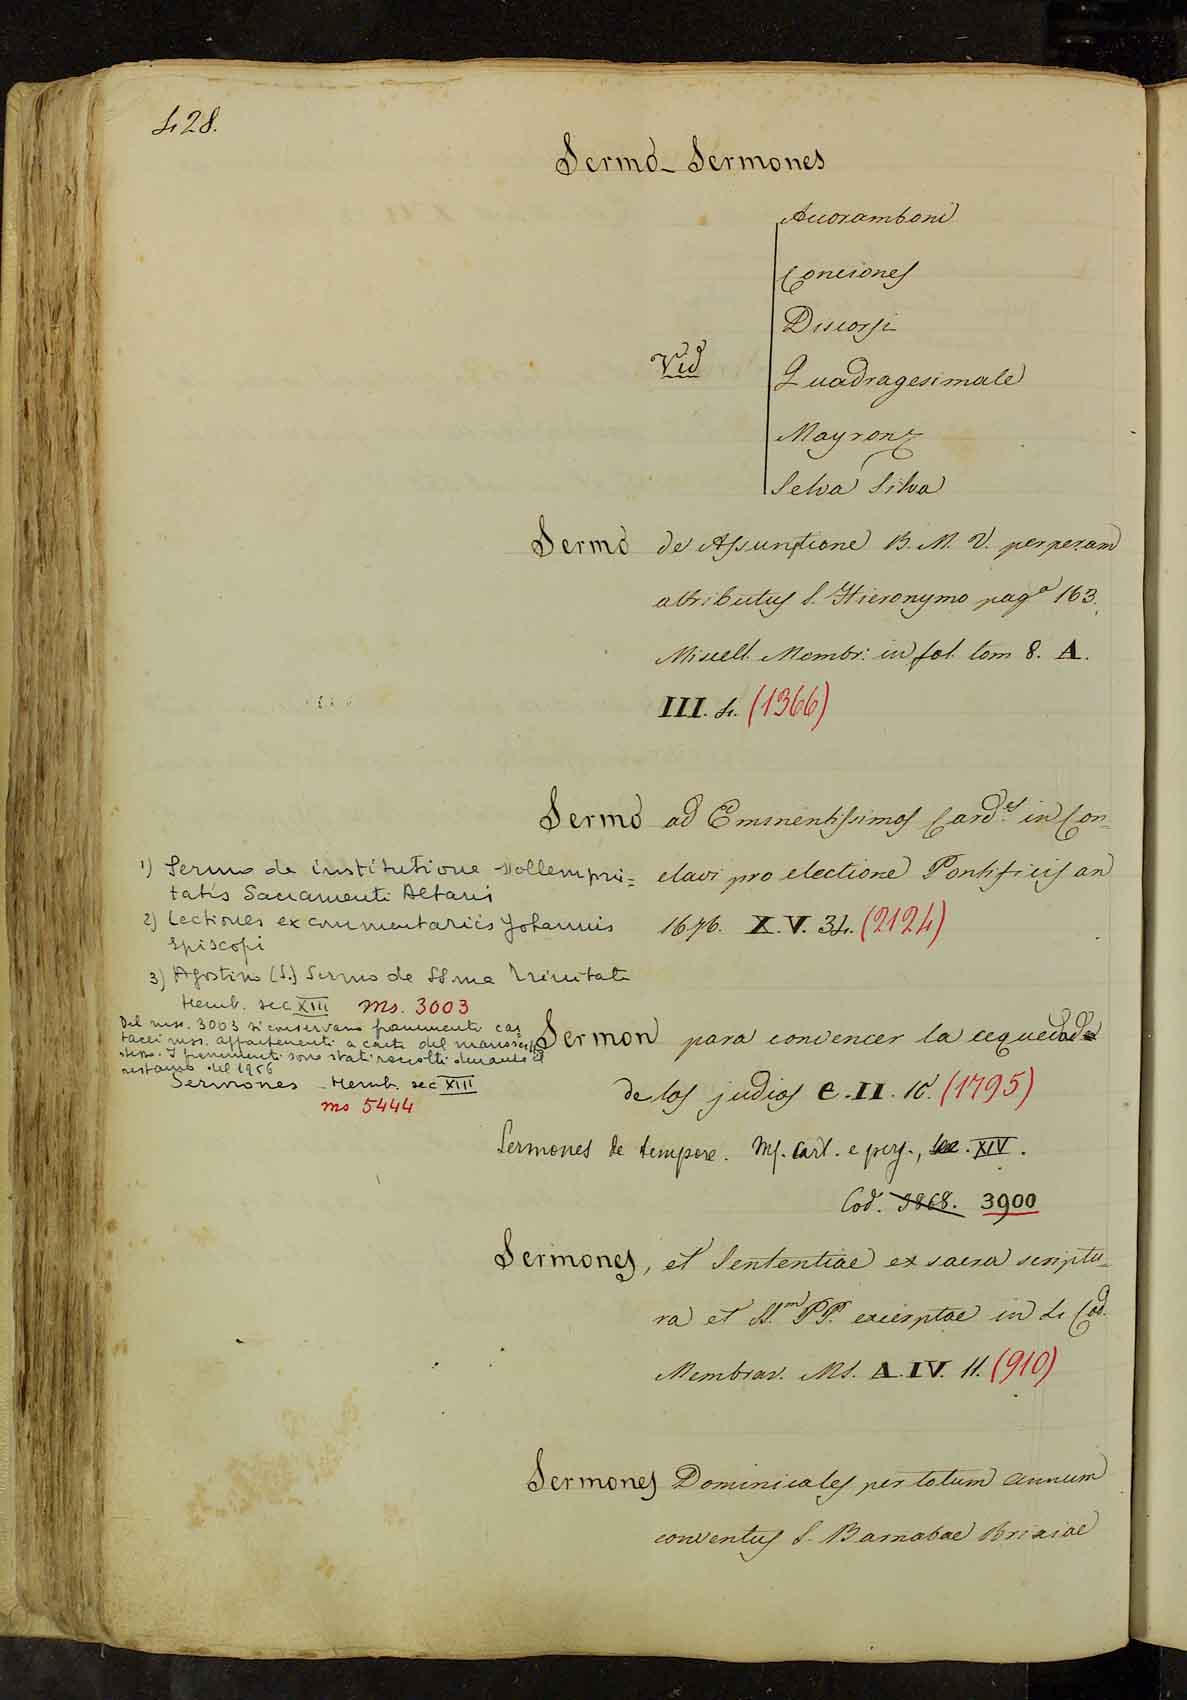 428.
Sermo - Sermones
Accoramboni
Conciones
Discorsi
Vid Quadragesimale
Mayronz
Selva Silva
Sermo de Assuntione B. M. V. perperam
attributus S. Hieronymo pagª 163.
Miscell. Membr: in fol. tom 8. A.
III. 4. (1366)
Sermo ad Eminentissimos Card.es in Con=
clavi pro electione Pontificis an
1676. X. V. 34. (2124)
1) Sermo de institutione sollempni=
tatis Sacramenti Altaris
2) Lectiones ex commentariis Johannis
episcopi
3) Agostino (S.) Sermo de SSma Trinitate
Memb. sec XIII ms. 3003
Del mss. 3003 si conservano frammenti car
tacei mss. appartenenti a carte del manoscritto
stesso. I frammenti sono stati raccolti durante il
restauro del 1956
Sermones Memb. sec XIII
ms 5444
Sermon para convencer la ceguedad
de los judios C. II. 10. (1795)
Sermones de tempore. Ms. cart. e perg., sec. XIV.
Cod. 3868. 3900
Sermones, et Sententiae ex sacra scriptu=
ra et SS.m PP. excerptae in 4 Cod.
Membran. MS. A. IV. 11. (910)
Sermones Dominicales per totum annum
conventus S. Barnabae Brixiae